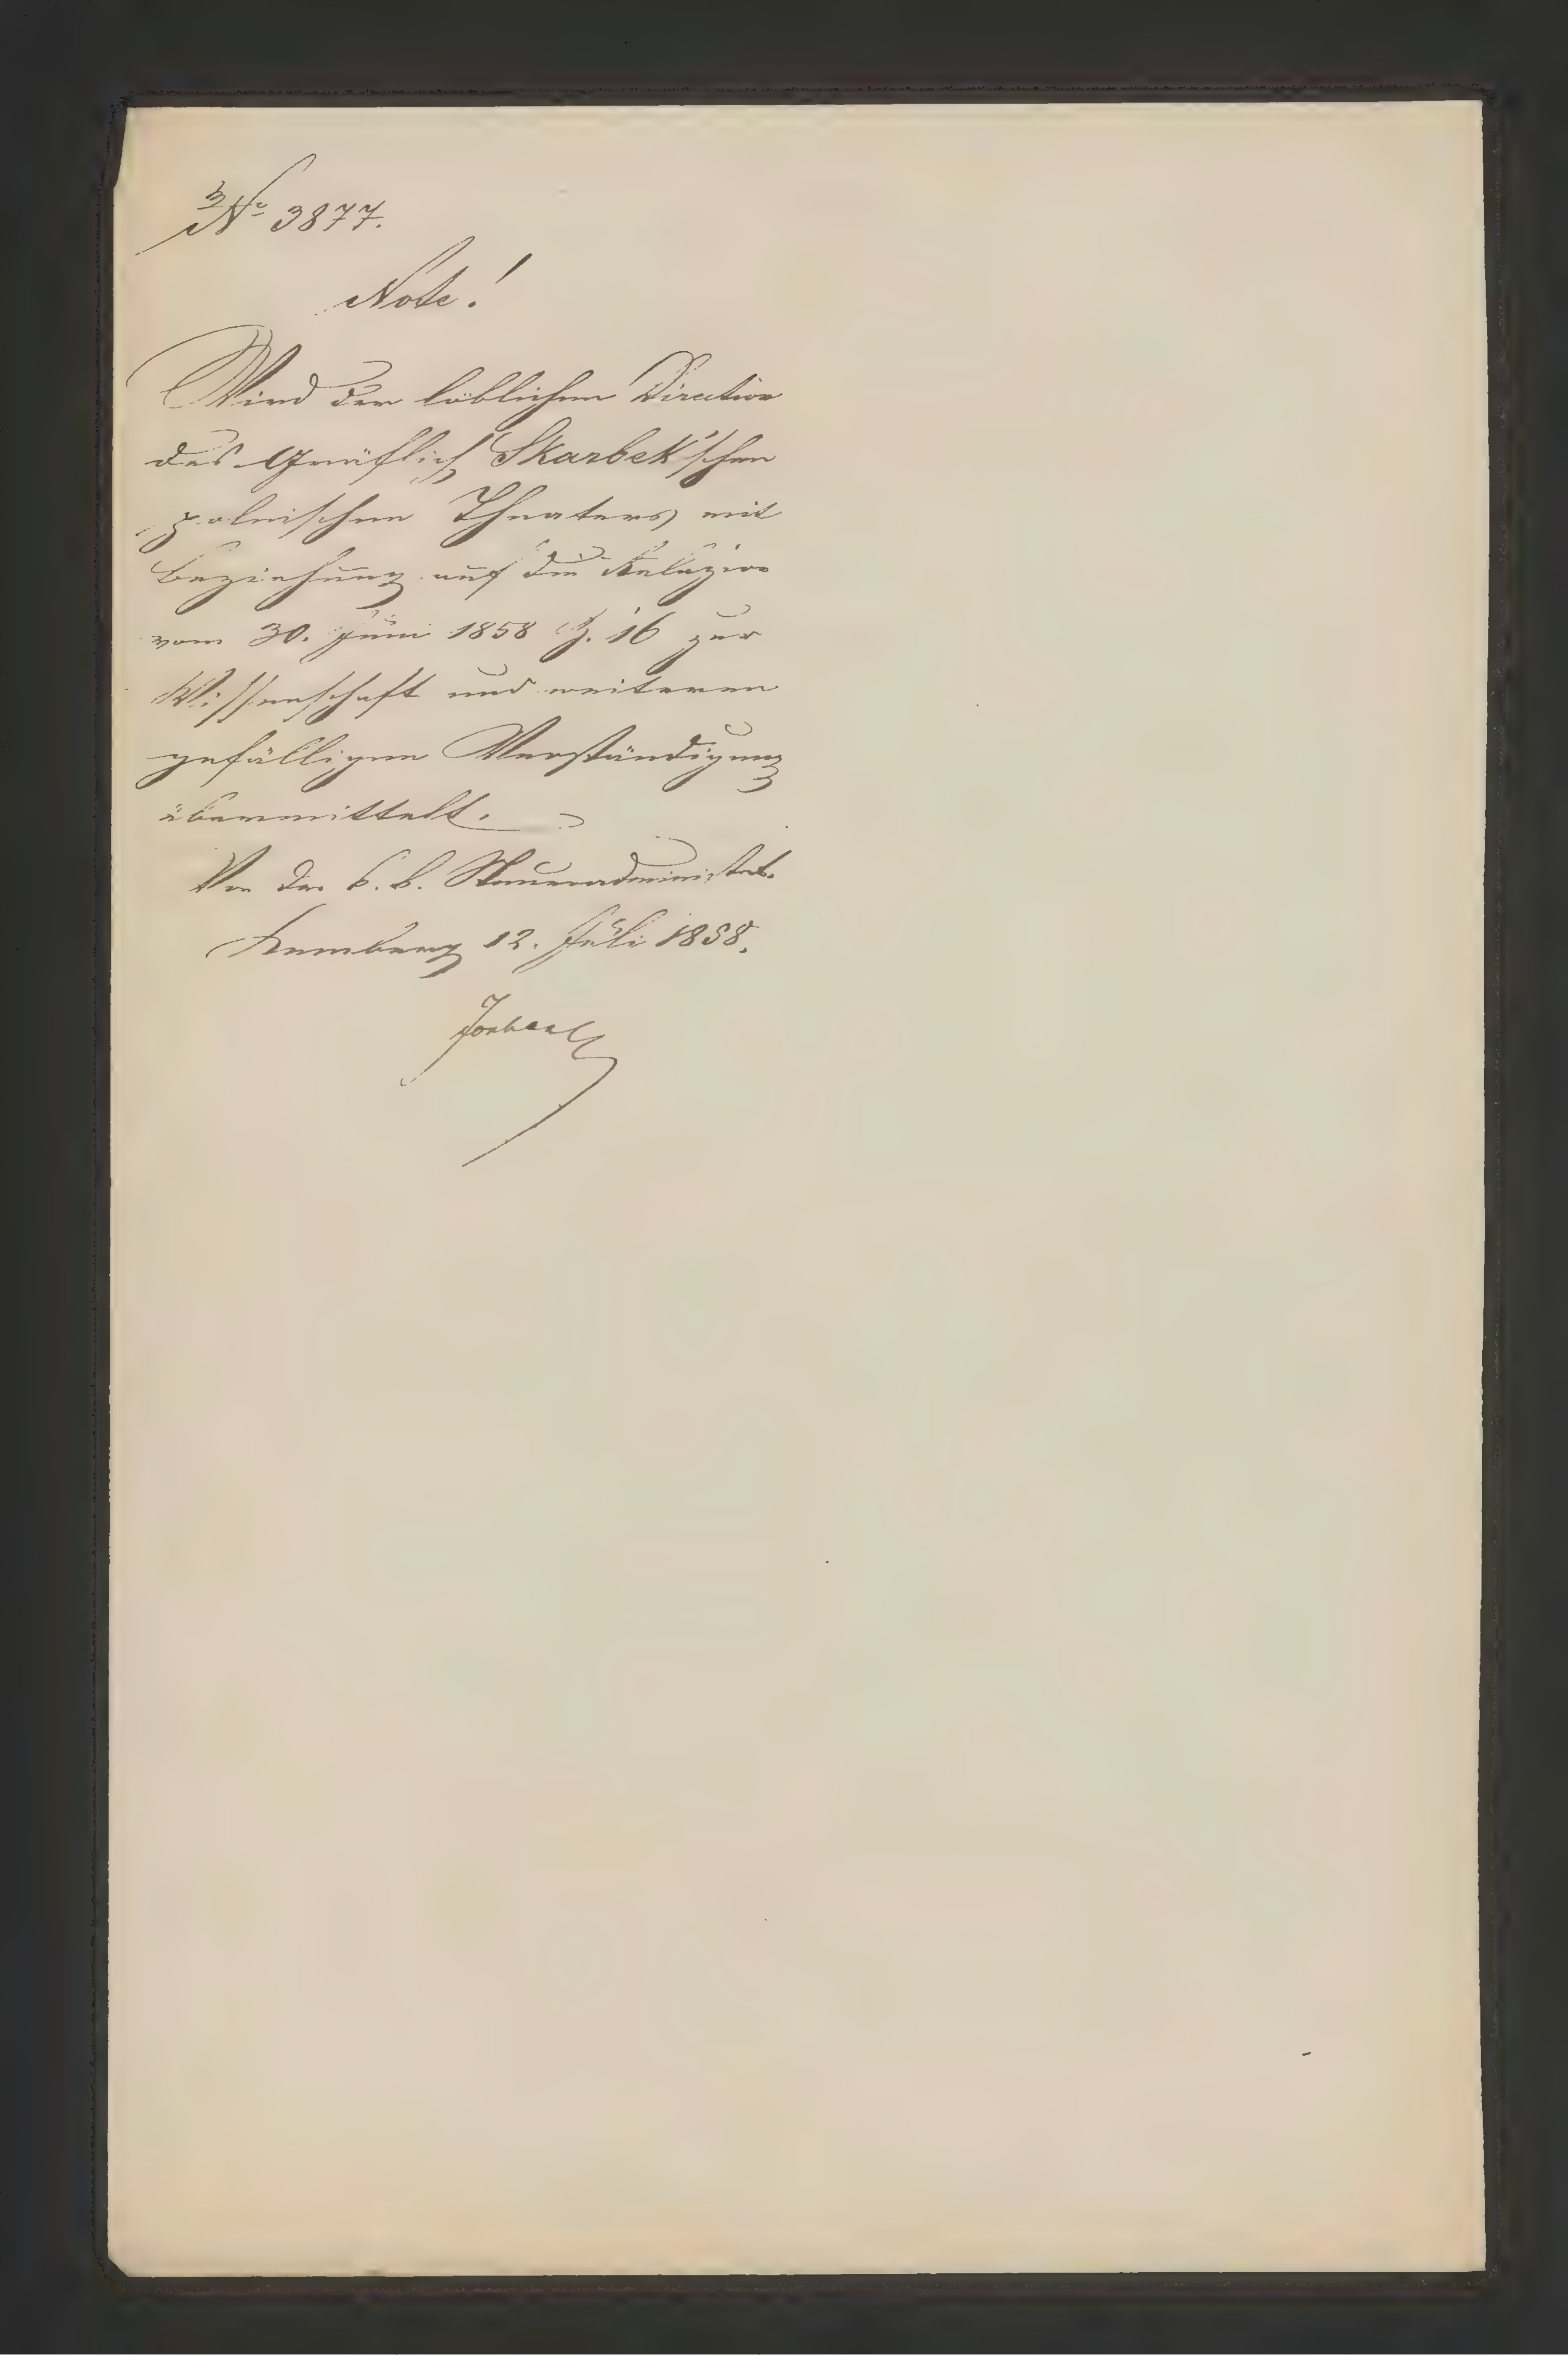 No 3877.
Note!
Wird der löblichen Direction
des Gräflich Skarbek'schen
polnischen Theaters mit
Beziehung auf die Relazion
vom 30. Juni 1858 Z. 16 zur
Wissenschaft und weiteren
gefälligen Verständigung
übermittelt.
Von der k. k. Steueradministrat.
Lemberg 12. Juli 1858.